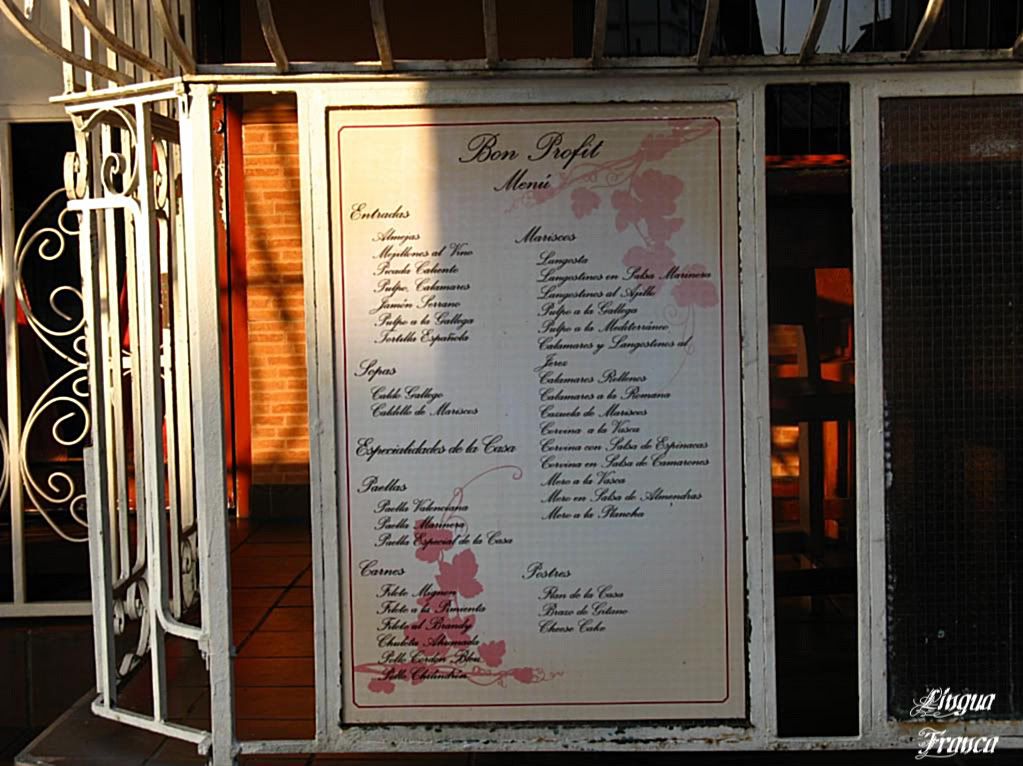 Bon Profit
Menú
Entradas
Almejas
Mejillones al Vino
Picada Caliente
Pulpo, Calamares
Jamón Serrano
Pulpo a la Gallega
Tortilla Española
Sopas
Caldo Gallego
Caldillo de Mariscos
Especialidades de la Casa
Paellas
Paella Valenciana
Paella Marinera
Paella Especial de la Casa
Carnes
Filete Mignon
Filete a la Pimienta
Filete al Brandy
Chuleta Ahumada
Pollo Cordon Bleu
Pollo Chilindrón
Mariscos
Langosta
Langostinos en Salsa Marinera
Langostinos al Ajillo
Pulpo a la Gallega
Pulpo a la Mediterráneo
Calamares y Langostinos al
Jerez
Calamares Rellenos
Calamares a la Romana
Cazuela de Mariscos
Corvina a la Vasca
Corvina con Salsa de Espinacas
Corvina en Salsa de Camarones
Mero a la Vasca
Mero en Salsa de Almendras
Mero a la Plancha
Postres
Flan de la Casa
Brazo de Gitano
Cheese Cake
Lingua
Franca